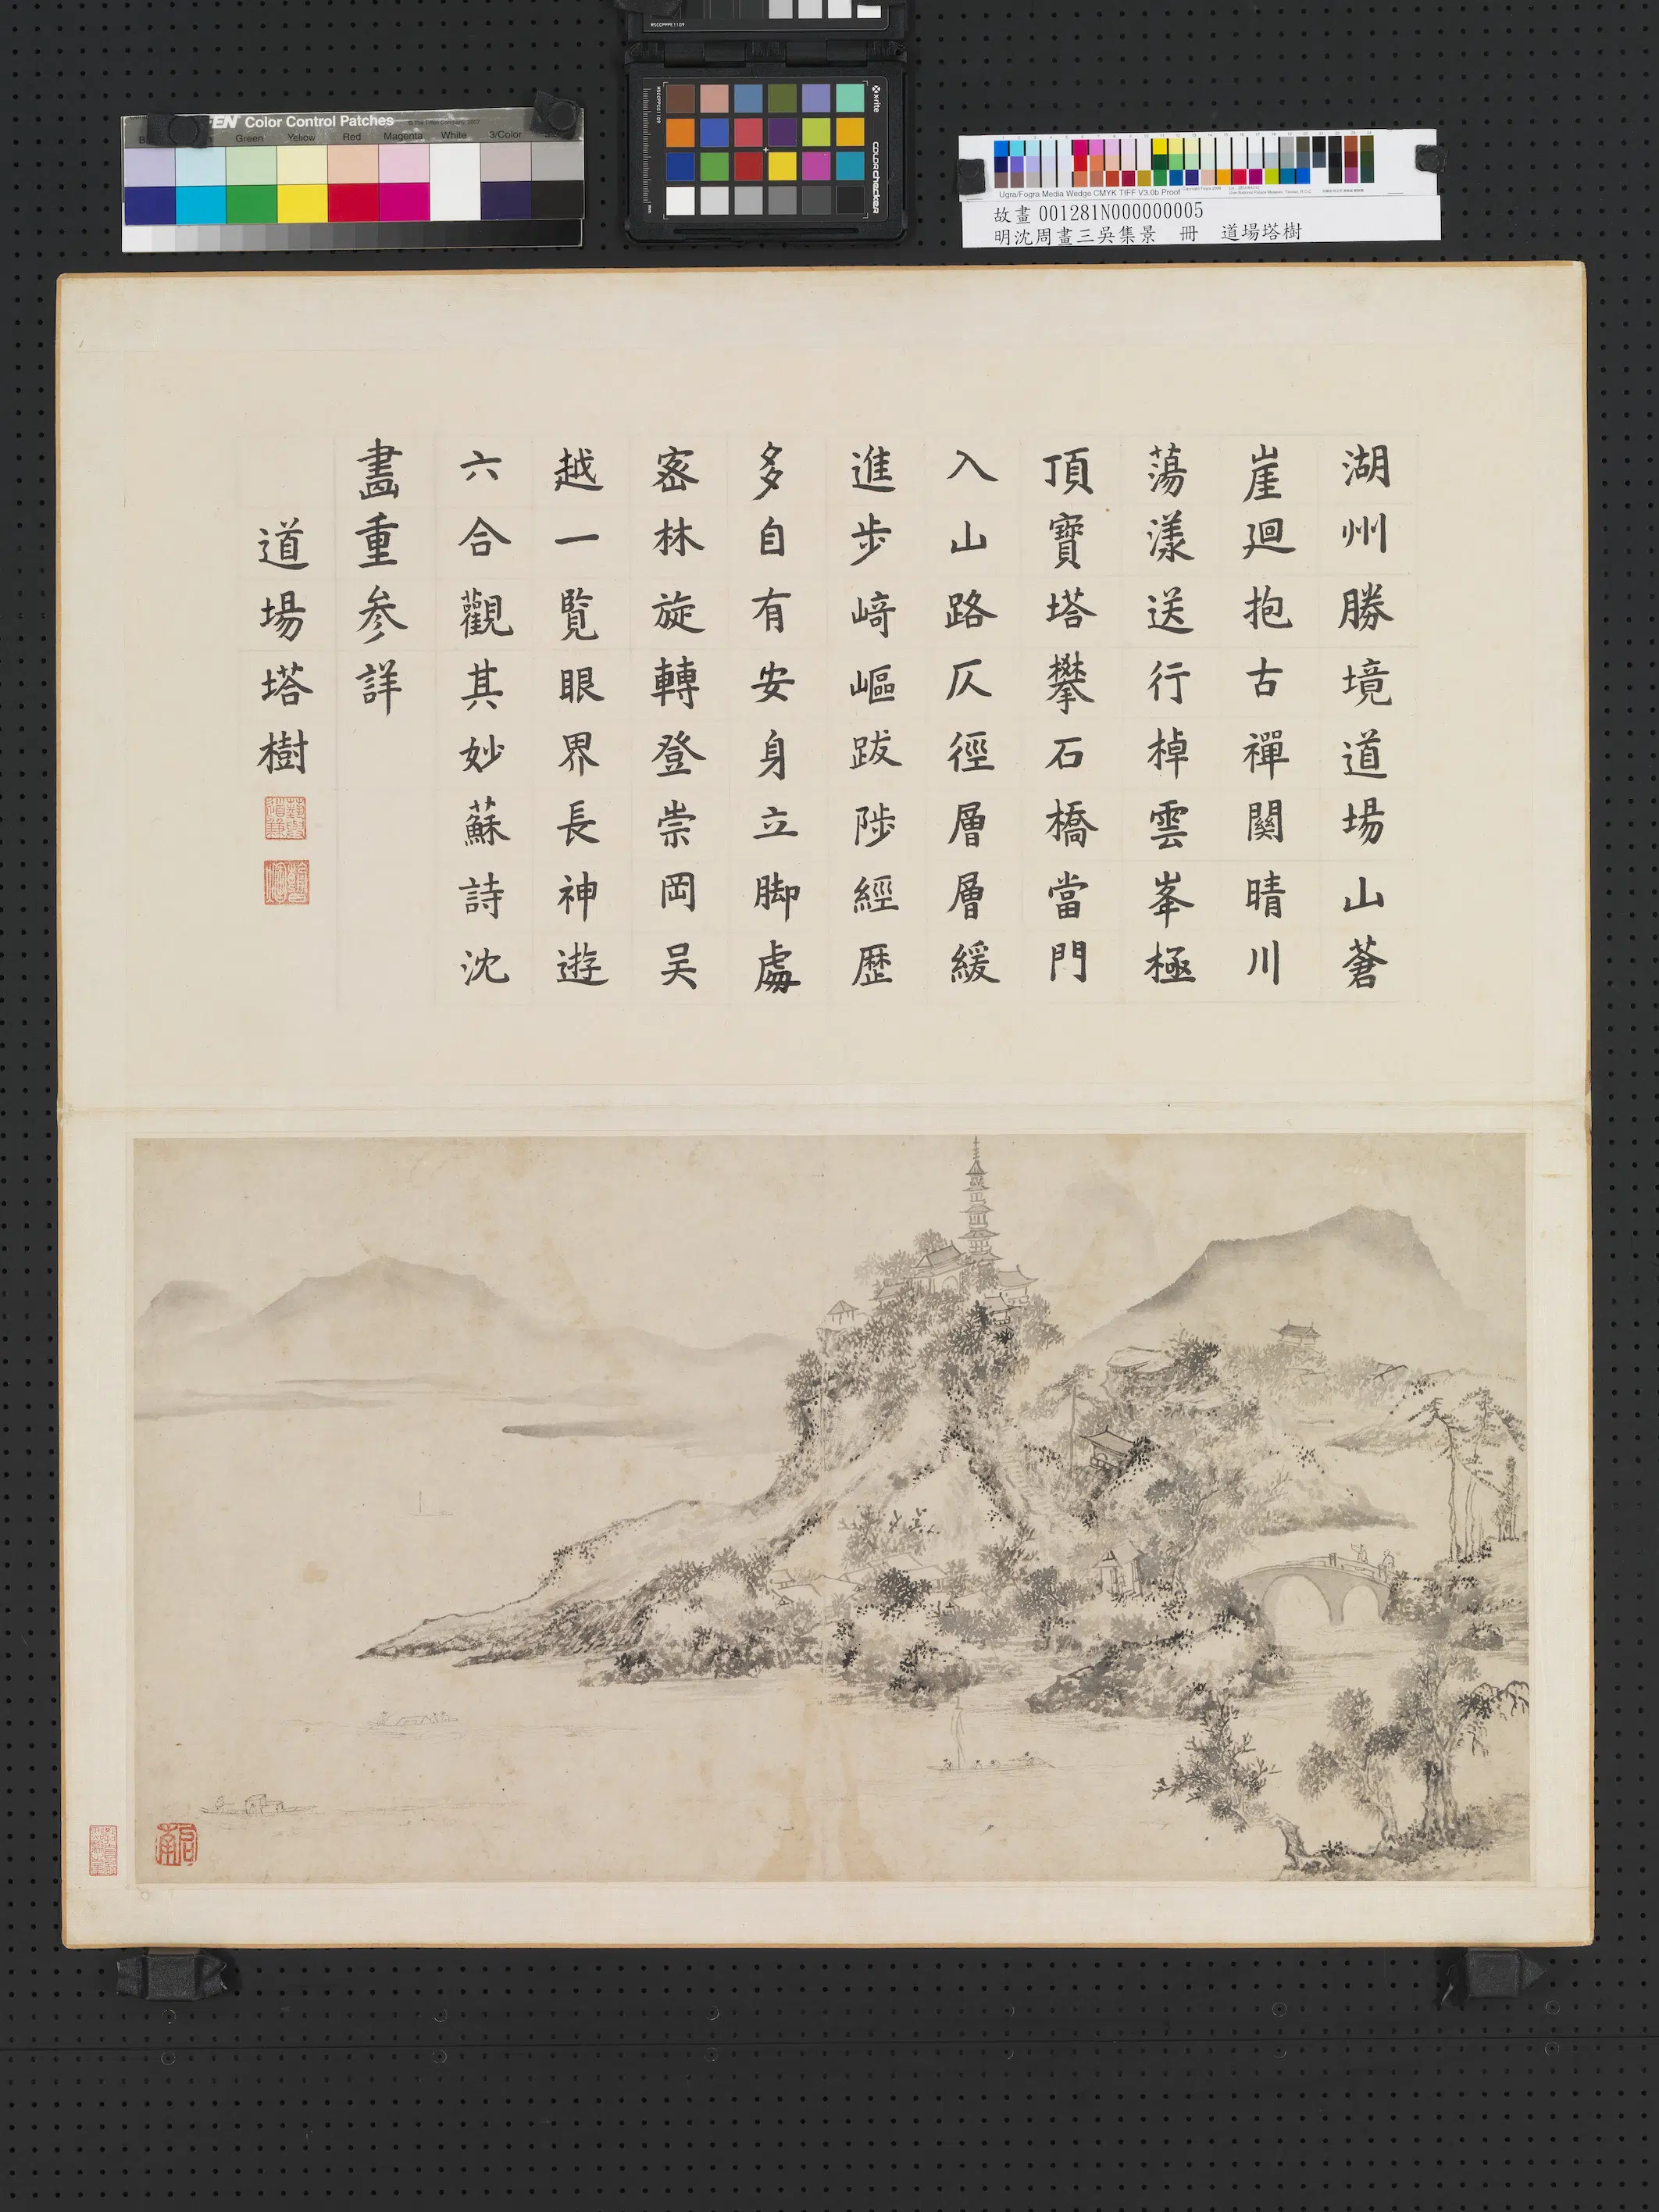 Color Control Patches
Green Yellow Red Magenta White 3/Color
MSCCPPPE1109
MSCCPPCC1109
x-rite
colorchecker
mm
Ugra/Fogra Media Wedge CMYK TIFF V3.0b Proof
故畫 001281N000000005
明沈周畫三吳集景 冊 道場塔樹
湖州勝境道場山蒼
崖廻抱古禪關晴川
蕩漾送行棹雲峯極
頂寶塔攀石橋當門
入山路仄徑層層緩
進步崎嶇跋陟經歷
多自有安身立脚處
密林旋轉登崇岡吴
越一覧眼界長神遊
六合觀其妙蘇詩沈
畫重参詳
道場塔樹
啟南